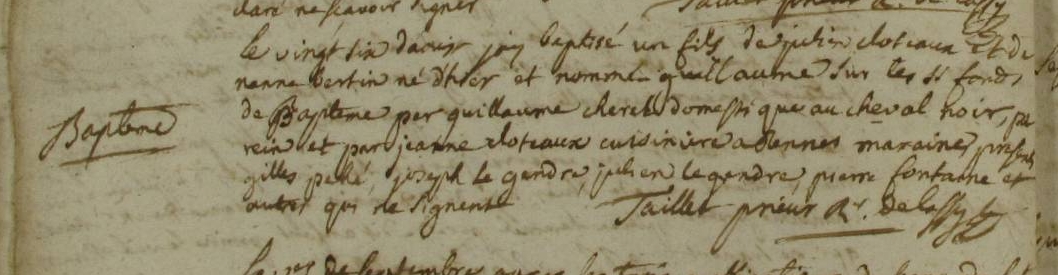 daré ne scavoir signer Taillet prieur R. de Lassy
le vingt six dauir jay baptisé un fils de julien cloteaux Et de
nanne bertin né d'hier et nommé guillaume sur les st fonds
Baptême
de Bapteme par guillaume cherel domestique au cheval noir, pa
rein et par jeanne cloteaux cuisiniere a Rennes maraine, presents
gilles pehé joseph Le gendre, julien legendre, pierre fontaine et
autres qui ne signent Taillet prieur Rr. de Lassy
de Septembre